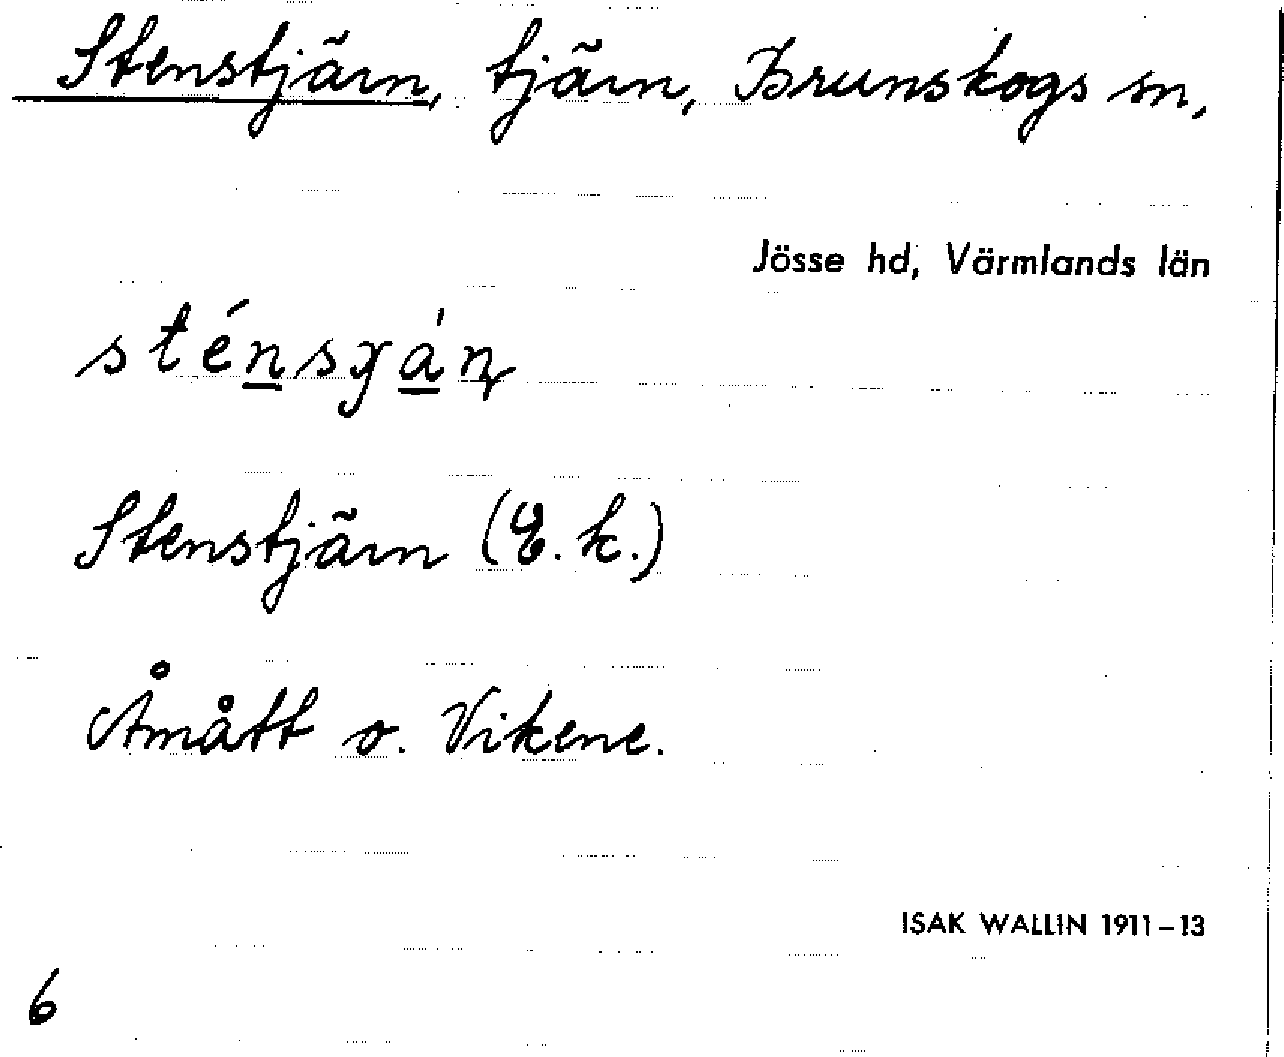 Stenstjärn, tjärn, Brunskogs sn,
Jösse hd, Värmlands län
Stenstjärn (E. k.)
Åmått o. Vikene.
ISAK WALLIN 1911–13
6